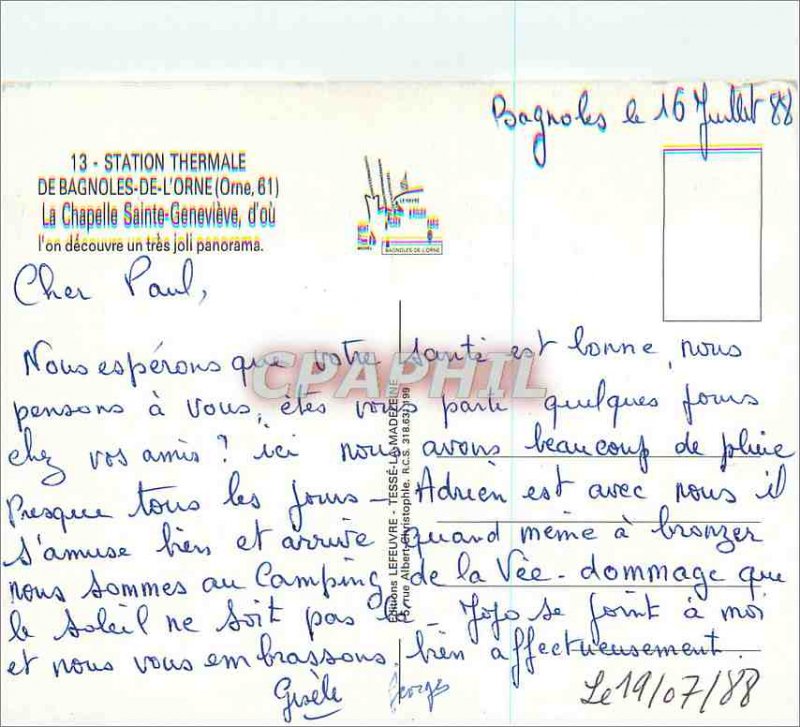 Bagnoles le 16 Juillet 88
13 - STATION THERMALE
DE BAGNOLES-DE-L'ORNE (Orne, 61)
La Chapelle Sainte-Geneviève, d'où
l'on découvre un très joli panorama.
BAGNOLES-DE-L'ORNE
Cher Paul,
Nous espérons que votre santé est bonne, nous
pensons à vous, êtes vous parti quelques jours
chez vos amis? ici nous avons beaucoup de pluie
Presque tous les jours - Adrien est avec nous il
s'amuse bien et arrive quand même à bronzer
nous sommes au Camping de la Vée - dommage que
le soleil ne soit pas là. Jojo se joint à moi
et nous vous embrassons bien affectueusement.
Gisèle Georges
Le 19/07/88
Editions LEFEUVRE - TESSÉ-LA-MADELEINE
rue Albert-Christophle. R.C.S.
CPAPHIL